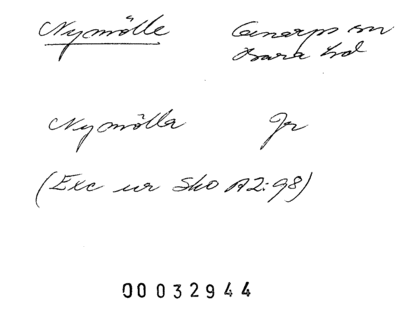 Nymölle Genarps sn
Bara hd
Nymölla Jr
(Exc ur Sko A2:98)
00032944